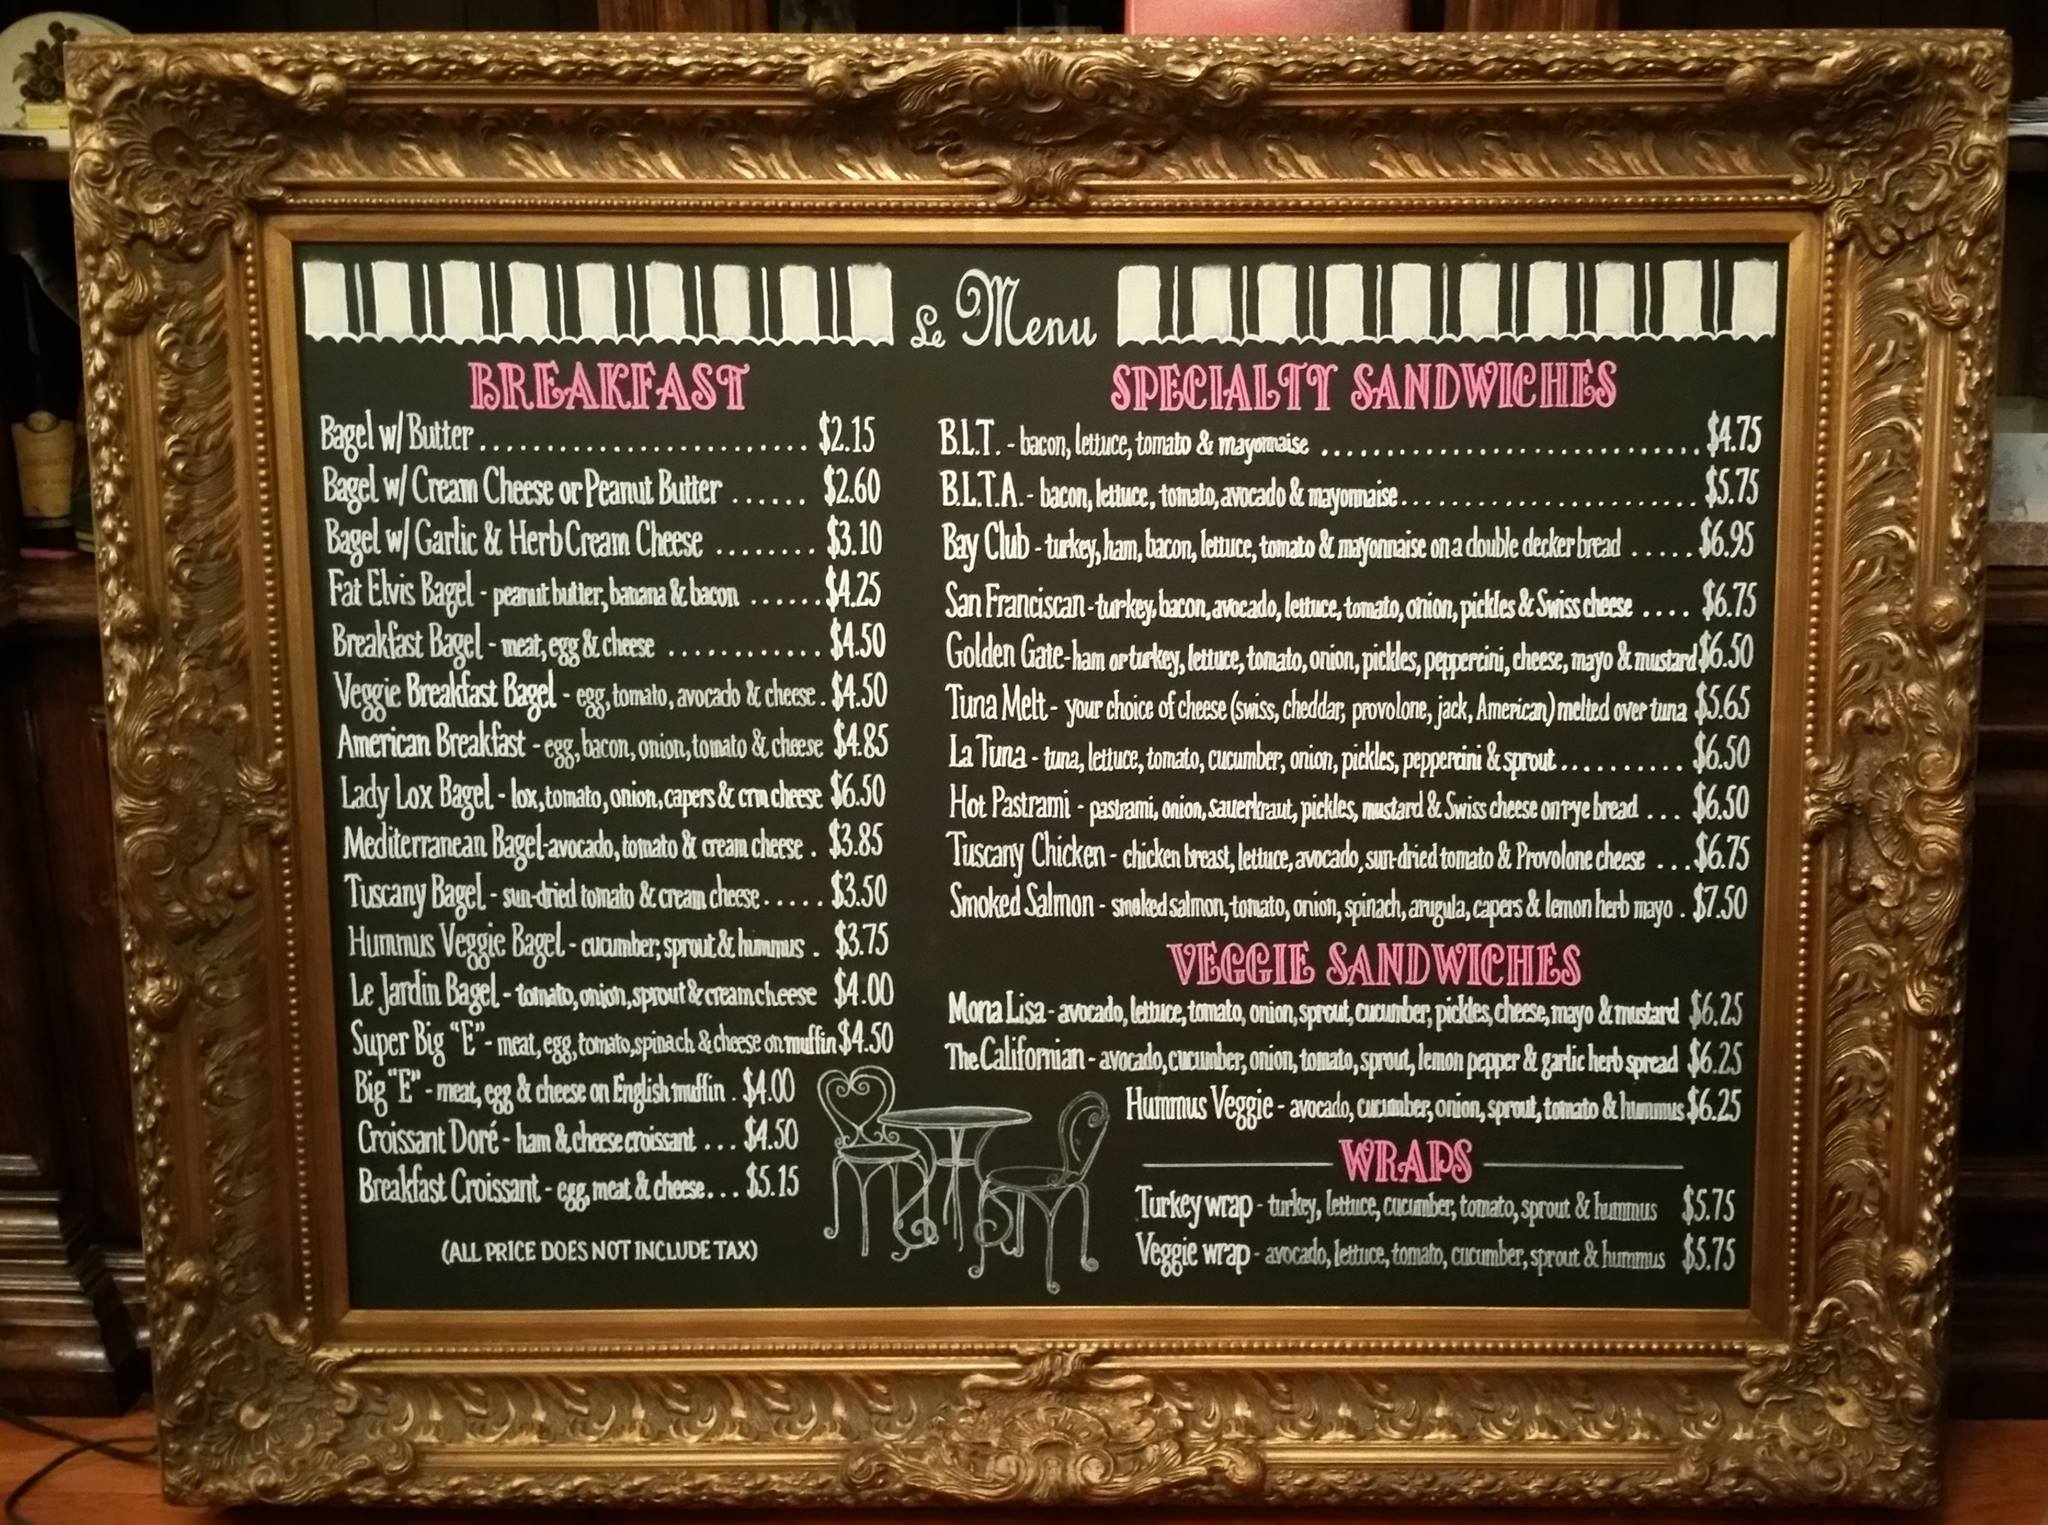 Le Menu
BREAKFAST
Bagel w/ Butter ........................ $2.15
Bagel w/ Cream Cheese or Peanut Butter ...... $2.60
Bagel w/ Garlic & Herb Cream Cheese ........ $3.10
Fat Elvis Bagel - peanut butter, banana & bacon ...... $4.25
Breakfast Bagel - meat, egg & cheese ............ $4.50
Veggie Breakfast Bagel - egg, tomato, avocado & cheese . $4.50
American Breakfast - egg, bacon, onion, tomato & cheese $4.85
Lady Lox Bagel - lox, tomato, onion, capers & crm cheese $6.50
Mediterranean Bagel - avocado, tomato & cream cheese . $3.85
Tuscany Bagel - sun-dried tomato & cream cheese ..... $3.50
Hummus Veggie Bagel - cucumber, sprout & hummus . $3.75
Le Jardin Bagel - tomato, onion, sprout & cream cheese $4.00
Super Big "E" - meat, egg, tomato, spinach & cheese on muffin $4.50
Big "E" - meat, egg & cheese on English muffin . $4.00
Croissant Doré - ham & cheese croissant ... $4.50
Breakfast Croissant - egg, meat & cheese ... $5.15
(ALL PRICE DOES NOT INCLUDE TAX)
SPECIALTY SANDWICHES
B.L.T. - bacon, lettuce, tomato & mayonnaise .............................. $4.75
B.L.T.A. - bacon, lettuce, tomato, avocado & mayonnaise ....................... $5.75
Bay Club - turkey, ham, bacon, lettuce, tomato & mayonnaise on a double decker bread ..... $6.95
San Franciscan - turkey, bacon, avocado, lettuce, tomato, onion, pickles & Swiss cheese .... $6.75
Golden Gate - ham or turkey, lettuce, tomato, onion, pickles, peppercini, cheese, mayo & mustard $6.50
Tuna Melt - your choice of cheese (swiss, cheddar, provolone, jack, American) melted over tuna $5.65
La Tuna - tuna, lettuce, tomato, cucumber, onion, pickles, peppercini & sprout .......... $6.50
Hot Pastrami - pastrami, onion, sauerkraut, pickles, mustard & Swiss cheese on rye bread ... $6.50
Tuscany Chicken - chicken breast, lettuce, avocado, sun-dried tomato & Provolone cheese ... $6.75
Smoked Salmon - smoked salmon, tomato, onion, spinach, arugula, capers & lemon herb mayo . $7.50
VEGGIE SANDWICHES
Mona Lisa - avocado, lettuce, tomato, onion, sprout, cucumber, pickles, cheese, mayo & mustard $6.25
The Californian - avocado, cucumber, onion, tomato, sprout, lemon pepper & garlic herb spread $6.25
Hummus Veggie - avocado, cucumber, onion, sprout, tomato & hummus $6.25
WRAPS
Turkey wrap - turkey, lettuce, cucumber, tomato, sprout & hummus $5.75
Veggie wrap - avocado, lettuce, tomato, cucumber, sprout & hummus $5.75